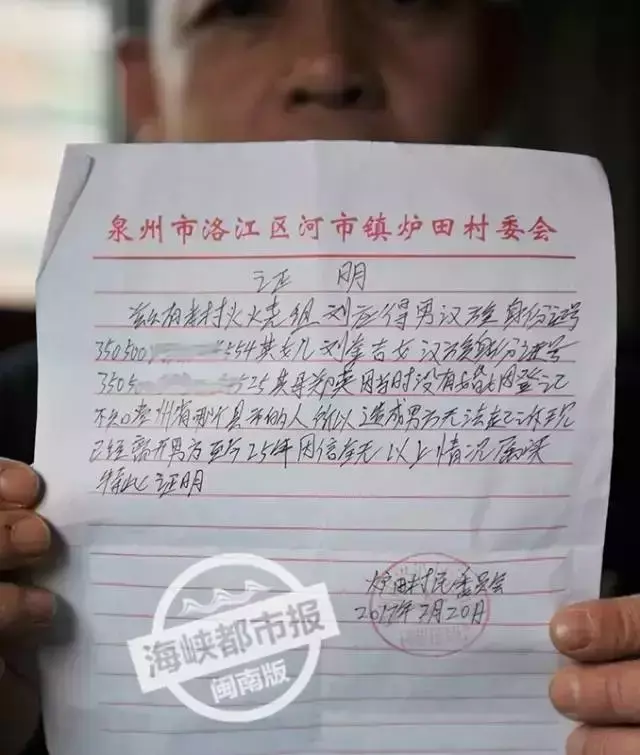 泉州市洛江区河市镇炉田村委会
证 明
兹有本村火烧组刘应得男汉族身份证号
350500 554其女儿刘金吉女汉族身份证号
3505 525其母郑英因当时没有婚姻登记
不知贵州省哪个县市的人所以造成男方无法
已经离开男方至今25年因信全无以上情况属实
特此证明
炉田村民委员会
2017年2月20日
海峡都市报
闽南版